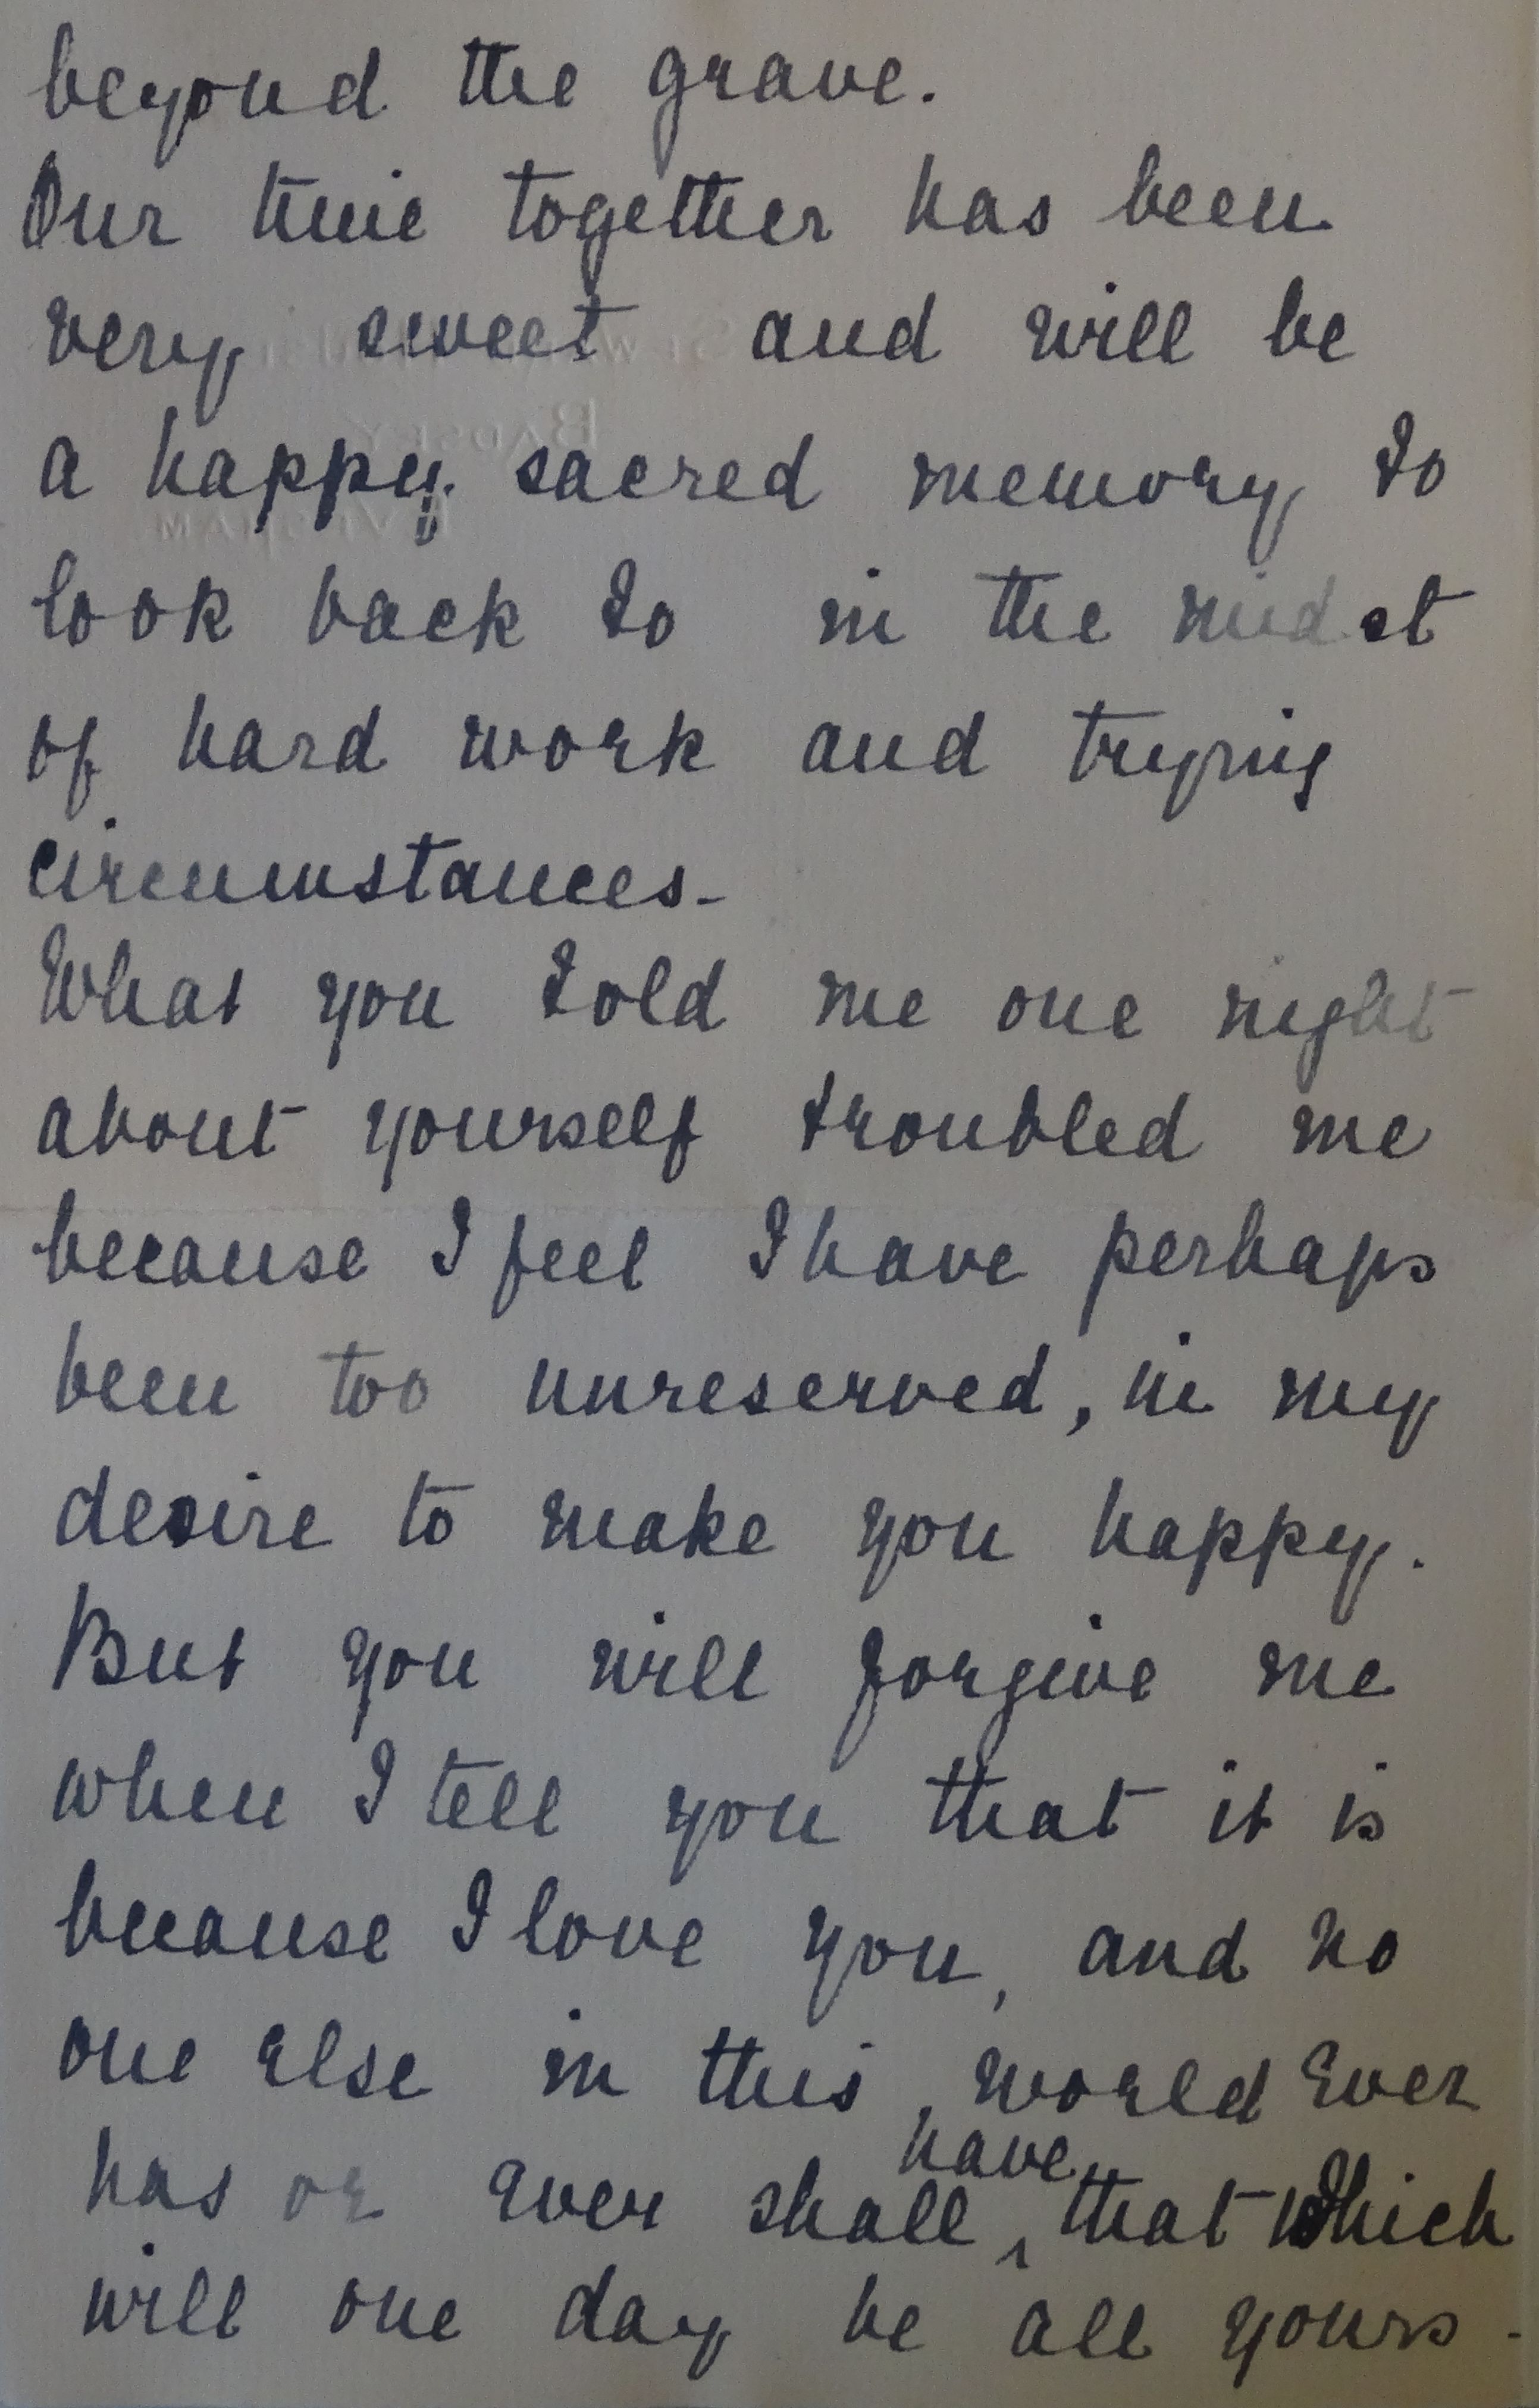 beyond the grave.
Our time together has been
very sweet and will be
a happy sacred memory to
look back to in the midst
of hard work and trying
circumstances-
What you told me one night
about yourself troubled me
because I feel I have perhaps
been too unreserved, in my
desire to make you happy.
But you will forgive me
when I tell you that it is
because I love you, and no
one else in this world ever
has or ever shall have that which
will one day be all yours.